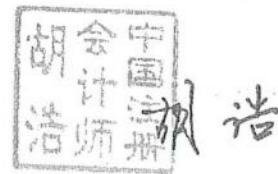 中国注册
会计师
胡浩
胡浩